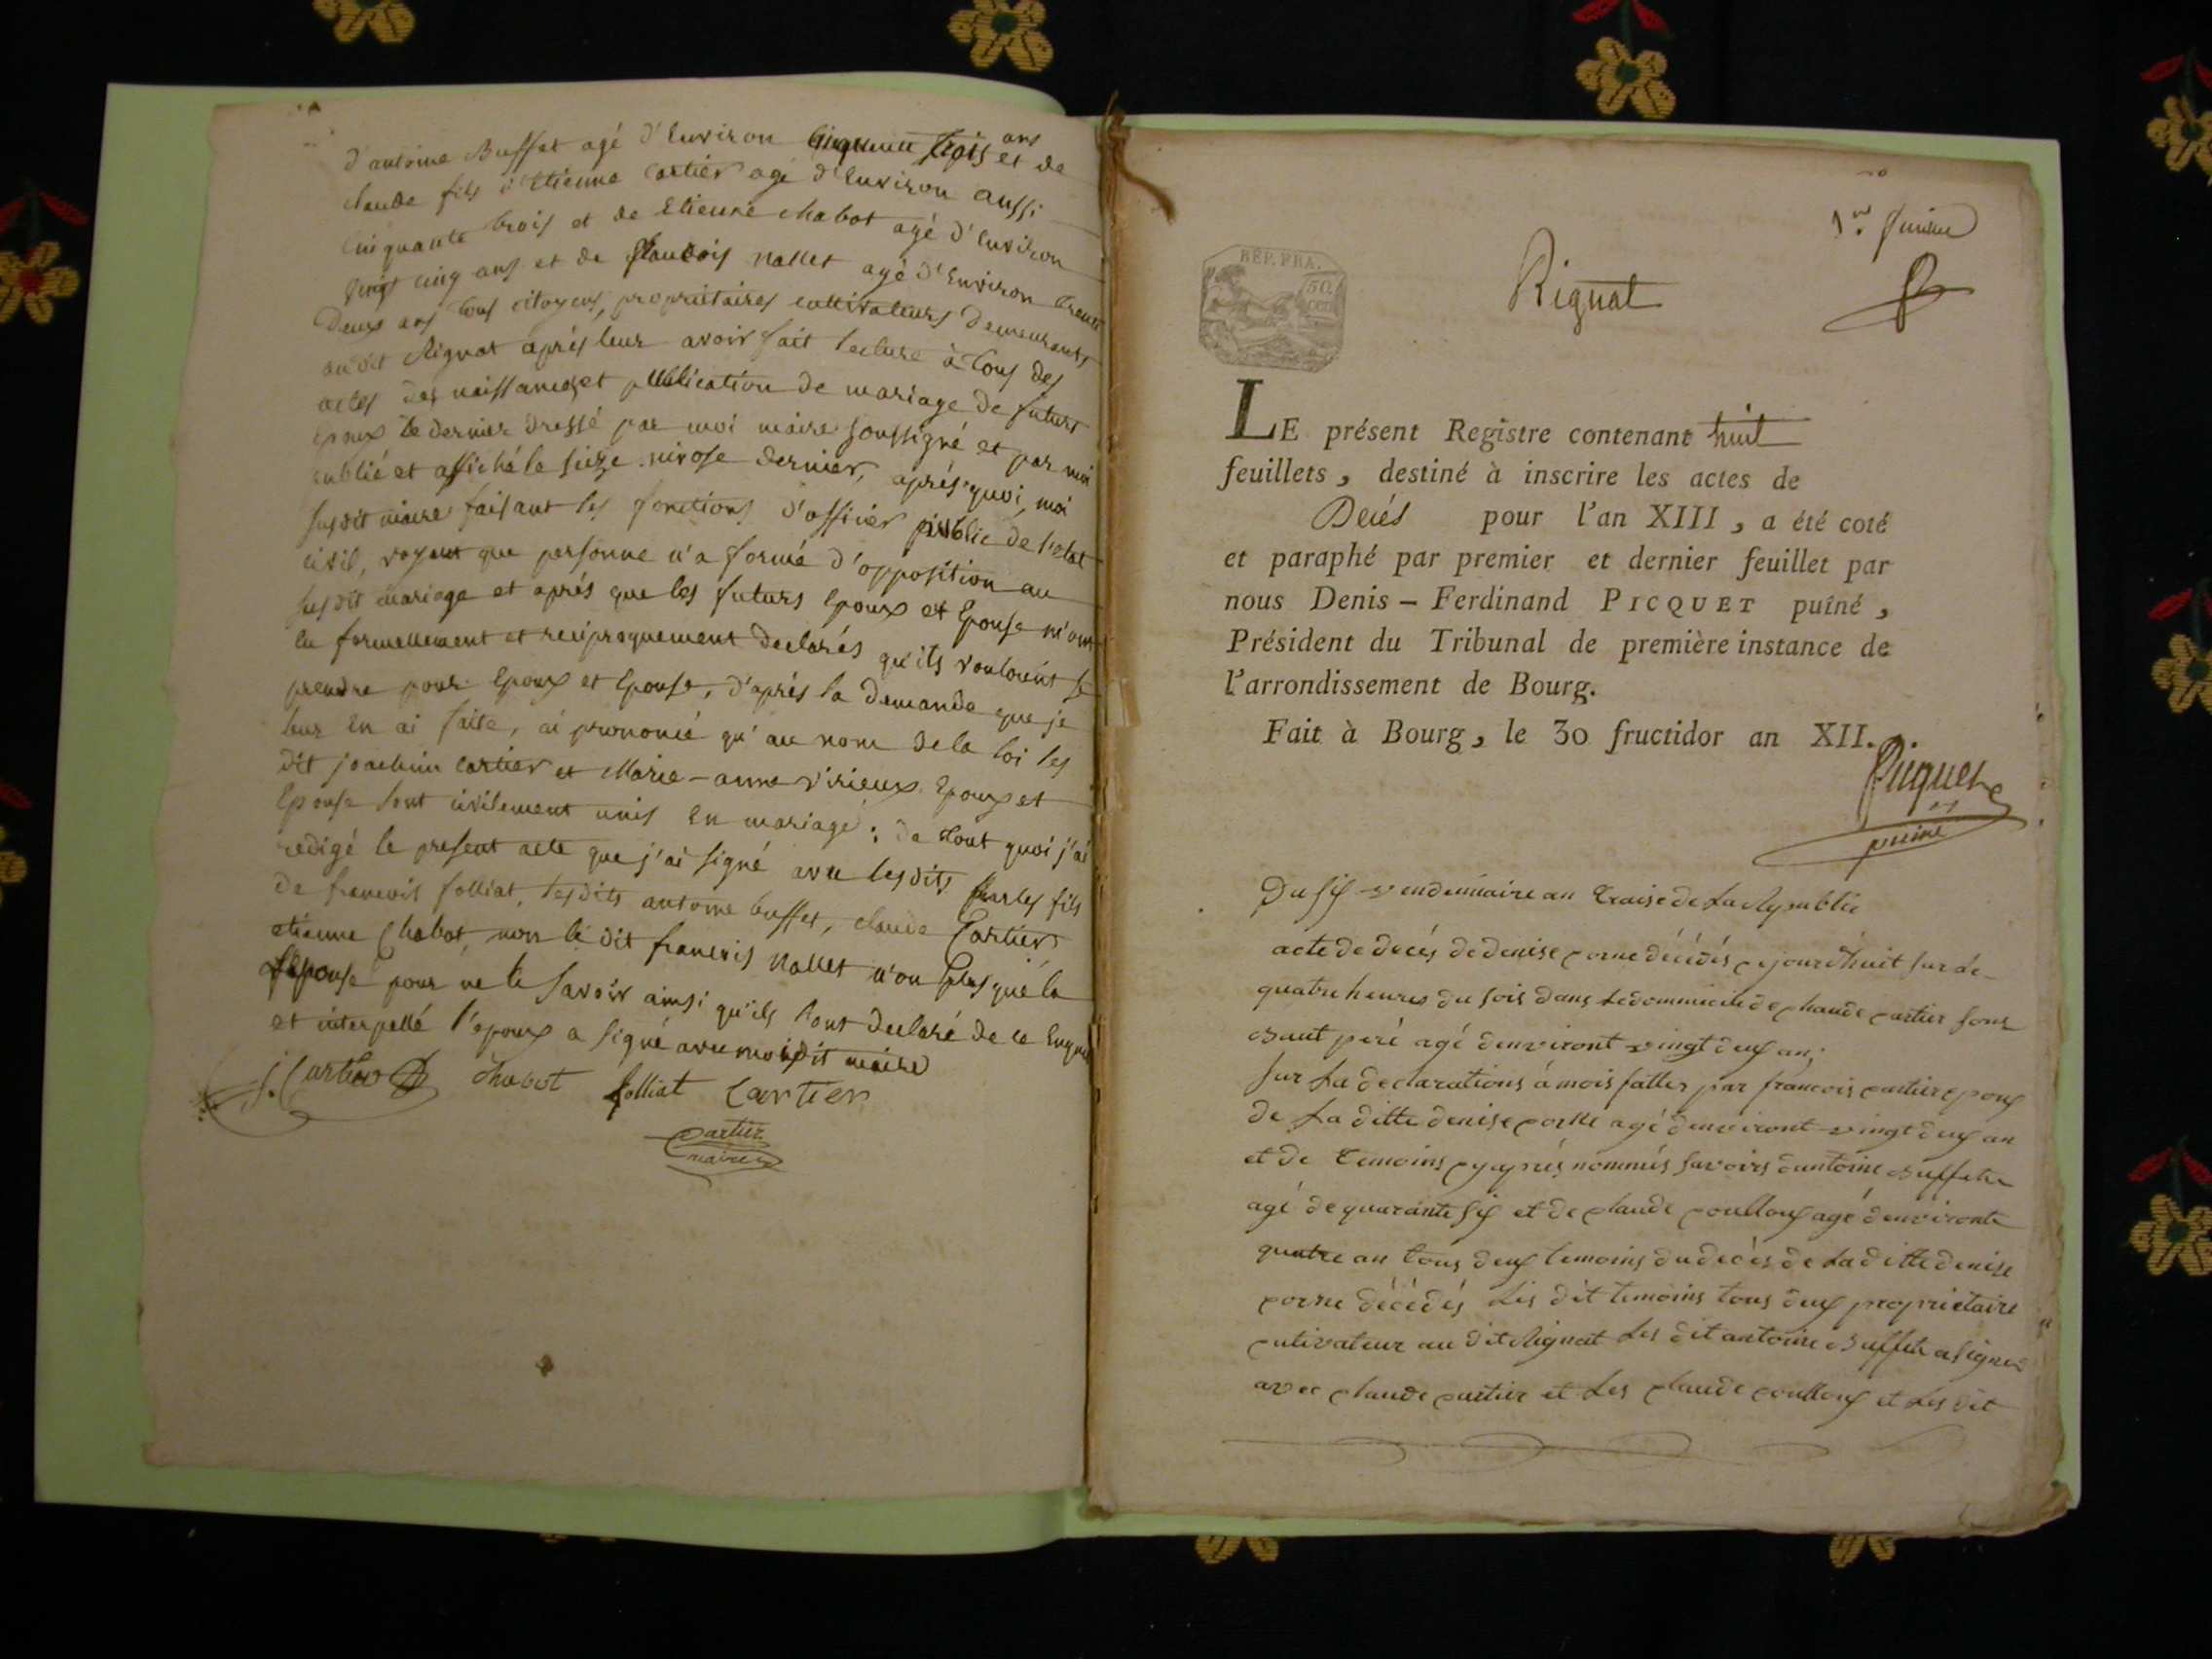 d'antoine Buffet agé d'Environ Cinquante trois ans et de
claude fils d'Etienne Cartier agé d'Environ aussi
Cinquante trois et de Etienne chabot agé d'Environ
vingt cinq ans et de francois nallet agé d'Environ trente
Deux ans tous citoyens, proprietaires cultivateurs demeurants
au dit Rignat aprés leur avoir fait lecture à tous des
actes des naissances et publication de mariage de futurs
Epoux le dernier dressé par moi maire soussigné et par moi
publié et affiché le seize nivose dernier, aprés quoi, moi
susdit maire faisant les fonctions d'officier public de l'etat
civil, voyant que personne n'a formé d'opposition au
susdit mariage et aprés que les futurs Epoux et Epouse m'ont
eu formellement et reciproquement declarés qu'ils vouloient se
prendre pour Epoux et Epouse, d'aprés la demande que je
leur en ai faite, ai prononcé qu'au nom de la loi les
dit joachim Cartier et Marie-anne virieux Epoux et
Epouse sont civilement unis en mariage : de tout quoi j'ai
redigé le present acte que j'ai signé avec lesdits
de francois folliat, lesdits antoine buffet, claude Cartier,
etienne Chabot, non le dit francois Nallet n'on plus que la
Epouse pour ne le savoir ainsi qu'ils l'ont declaré de ce Enquis
et interpellé l'epoux a signé avec moi dit maire
J. Cartier Chabot folliat Cartier
Cartier
maire
1er feuillet
Rignat
RÉP. FRA.
50 cen
LE présent Registre contenant huit
feuillets, destiné à inscrire les actes de
Decés pour l'an XIII, a été coté
et paraphé par premier et dernier feuillet par
nous Denis-Ferdinand PICQUET puîné,
Président du Tribunal de première instance de
l'arrondissement de Bourg.
Fait à Bourg, le 30 fructidor an XII.
Picquet
puiné
Du six vendemiaire an traise de La Republie
acte de decés de denise corne décédés cejourdhuit sur le
quatre heures du soir dans le dommicile de claude cartier sont
baut peré agé denviront vingt deux an;
sur La declarations à mois faittes par francois cartier epoux
de La ditte denise corne agé denviront vingt deux an
et de temoins cy aprés nommés savoirs dantoine Buffet
agé de quarante six et de claude agé denviront
quatre an tous deux temoins du decès de La ditte denise
corne décédés Les dit temoins tous deux proprietaire
cultivateur au dit Rignat Les dit antoine Buffet a signer
avec claude cartier et Les claude et Les dit